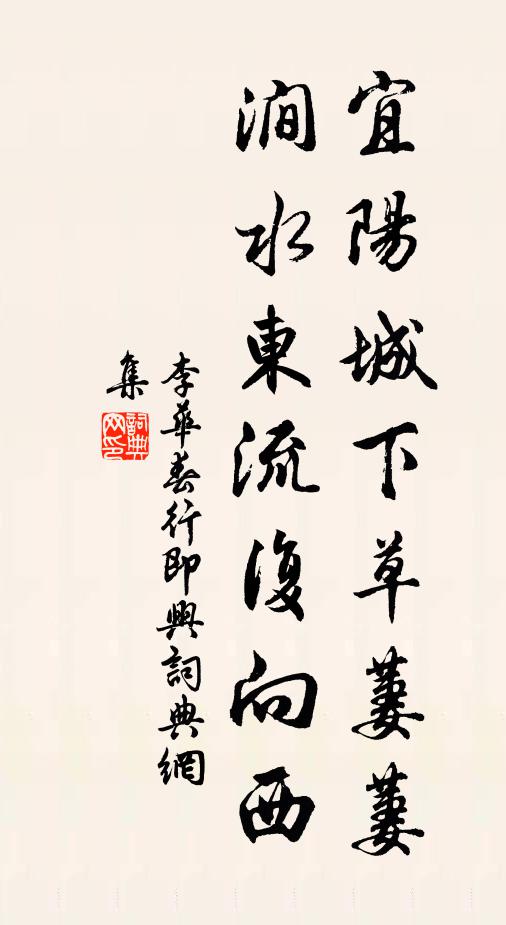 宜陽城下草萋萋
澗水東流復向西
李華春行即興詞典網
集
詞典網印